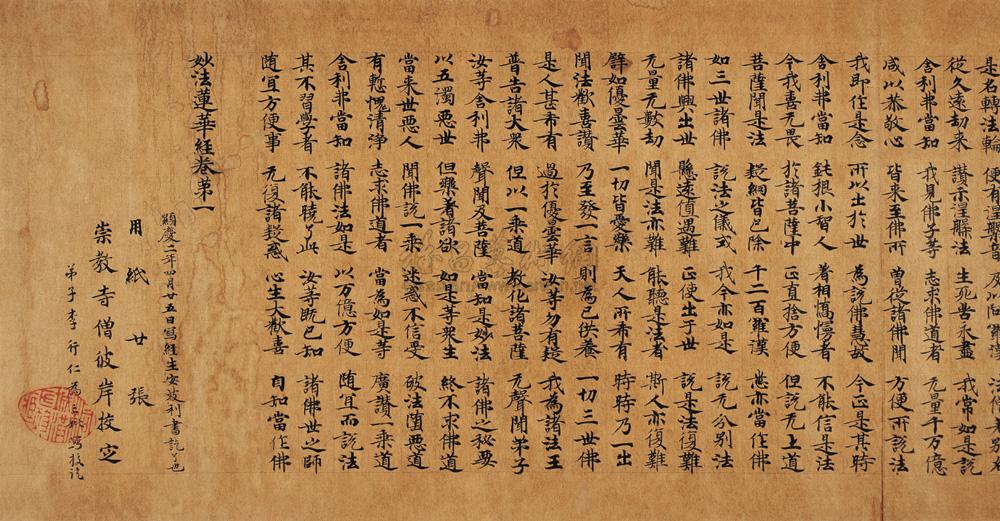 是名轉法輪 便有涅槃音 及以阿羅漢 法僧差別名
從久遠劫來 讚示涅槃法 生死苦永盡 我常如是說
舍利弗當知 我見佛子等 志求佛道者 无量千万億
咸以恭敬心 皆來至佛所 曾從諸佛聞 方便所說法
我即作是念 所以出於世 為說佛慧故 今正是其時
舍利弗當知 鈍根小智人 著相憍慢者 不能信是法
今我喜无畏 於諸菩薩中 正直捨方便 但說无上道
菩薩聞是法 疑網皆已除 千二百羅漢 悉亦當作佛
如三世諸佛 說法之儀式 我今亦如是 說无分別法
諸佛興出世 懸遠值遇難 正使出于世 說是法復難
无量无數劫 聞是法亦難 能聽是法者 斯人亦復難
譬如優曇華 一切皆愛樂 天人所希有 時時乃一出
聞法歡喜讚 乃至發一言 則為已供養 一切三世佛
是人甚希有 過於優曇華 汝等勿有疑 我為諸法王
普告諸大衆 但以一乘道 教化諸菩薩 无聲聞弟子
汝等舍利弗 聲聞及菩薩 當知是妙法 諸佛之秘要
以五濁惡世 但樂著諸欲 如是等衆生 終不求佛道
當來世惡人 聞佛說一乘 迷惑不信受 破法墮惡道
有慙愧清淨 志求佛道者 當為如是等 廣讚一乘道
舍利弗當知 諸佛法如是 以万億方便 隨宜而說法
其不習學者 不能曉了此 汝等既已知 諸佛世之師
隨宜方便事 无復諸疑惑 心生大歡喜 自知當作佛
妙法蓮華経卷第一
顯慶二年四月廿五日寫経生安故利書訖
用紙廿張
崇教寺僧彼岸挍定
弟子李行仁